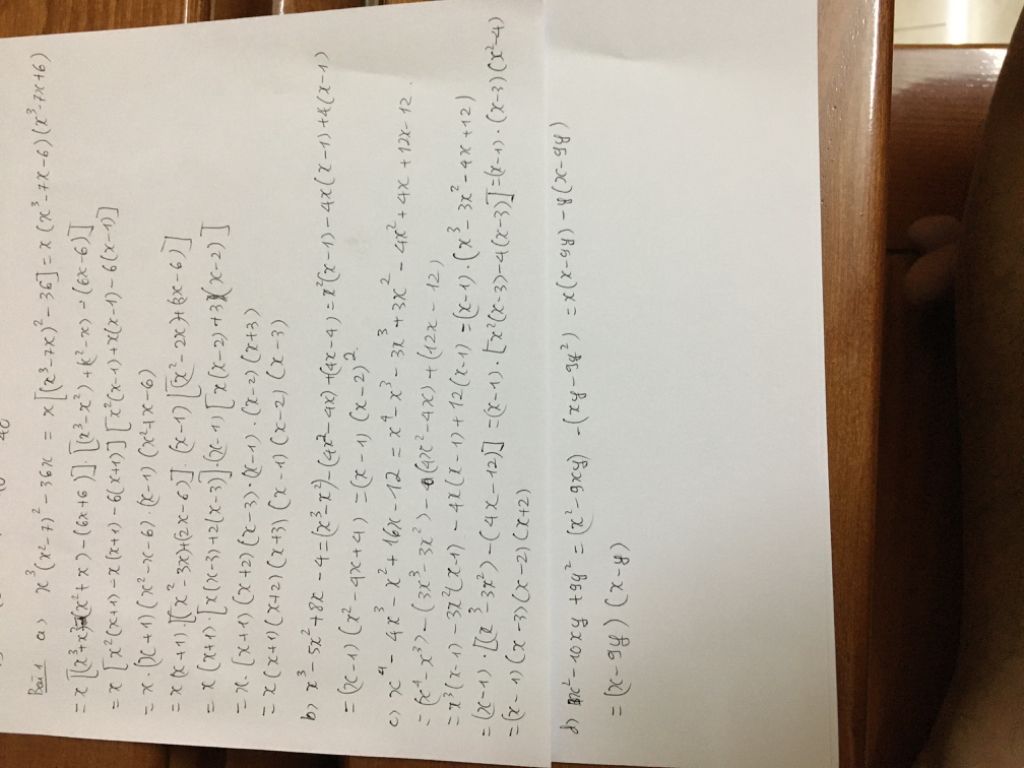 Bài 1 a) x³(x²-7)² - 36x = x[(x³-7x)² - 36] = x(x³-7x-6)(x³-7x+6)
= x[(x³+x²)-(x²+x)-(6x+6)].[(x³-x²)+(x²-x)-(6x-6)]
= x[x²(x+1)-x(x+1)-6(x+1)][x²(x-1)+x(x-1)-6(x-1)]
= x.(x+1)(x²-x-6).(x-1)(x²+x-6)
= x(x+1).[(x²-3x)+(2x-6)].(x-1)[(x²-2x)+(3x-6)]
= x(x+1).[x(x-3)+2(x-3)].(x-1)[x(x-2)+3(x-2)]
= x.(x+1)(x+2)(x-3).(x-1).(x-2)(x+3)
= x(x+1)(x+2)(x+3)(x-1)(x-2)(x-3)
b) x³-5x²+8x-4=(x³-x²)-(4x²-4x)+(4x-4)=x²(x-1)-4x(x-1)+4(x-1)
= (x-1)(x²-4x+4) = (x-1)(x-2)²
c) x⁴-4x³-x²+16x-12 = x⁴-x³-3x³+3x²-4x²+4x+12x-12
= (x⁴-x³)-(3x³-3x²)-(4x²-4x)+(12x-12)
= x³(x-1)-3x²(x-1)-4x(x-1)+12(x-1)=(x-1).(x³-3x²-4x+12)
= (x-1).[(x³-3x²)-(4x-12)]=(x-1).[x²(x-3)-4(x-3)]=(x-1).(x-3)(x²-4)
= (x-1)(x-3)(x-2)(x+2)
d) x²-10xy+9y² = (x²-9xy)-(xy-9y²) = x(x-9y)-y(x-9y)
= (x-9y)(x-y)